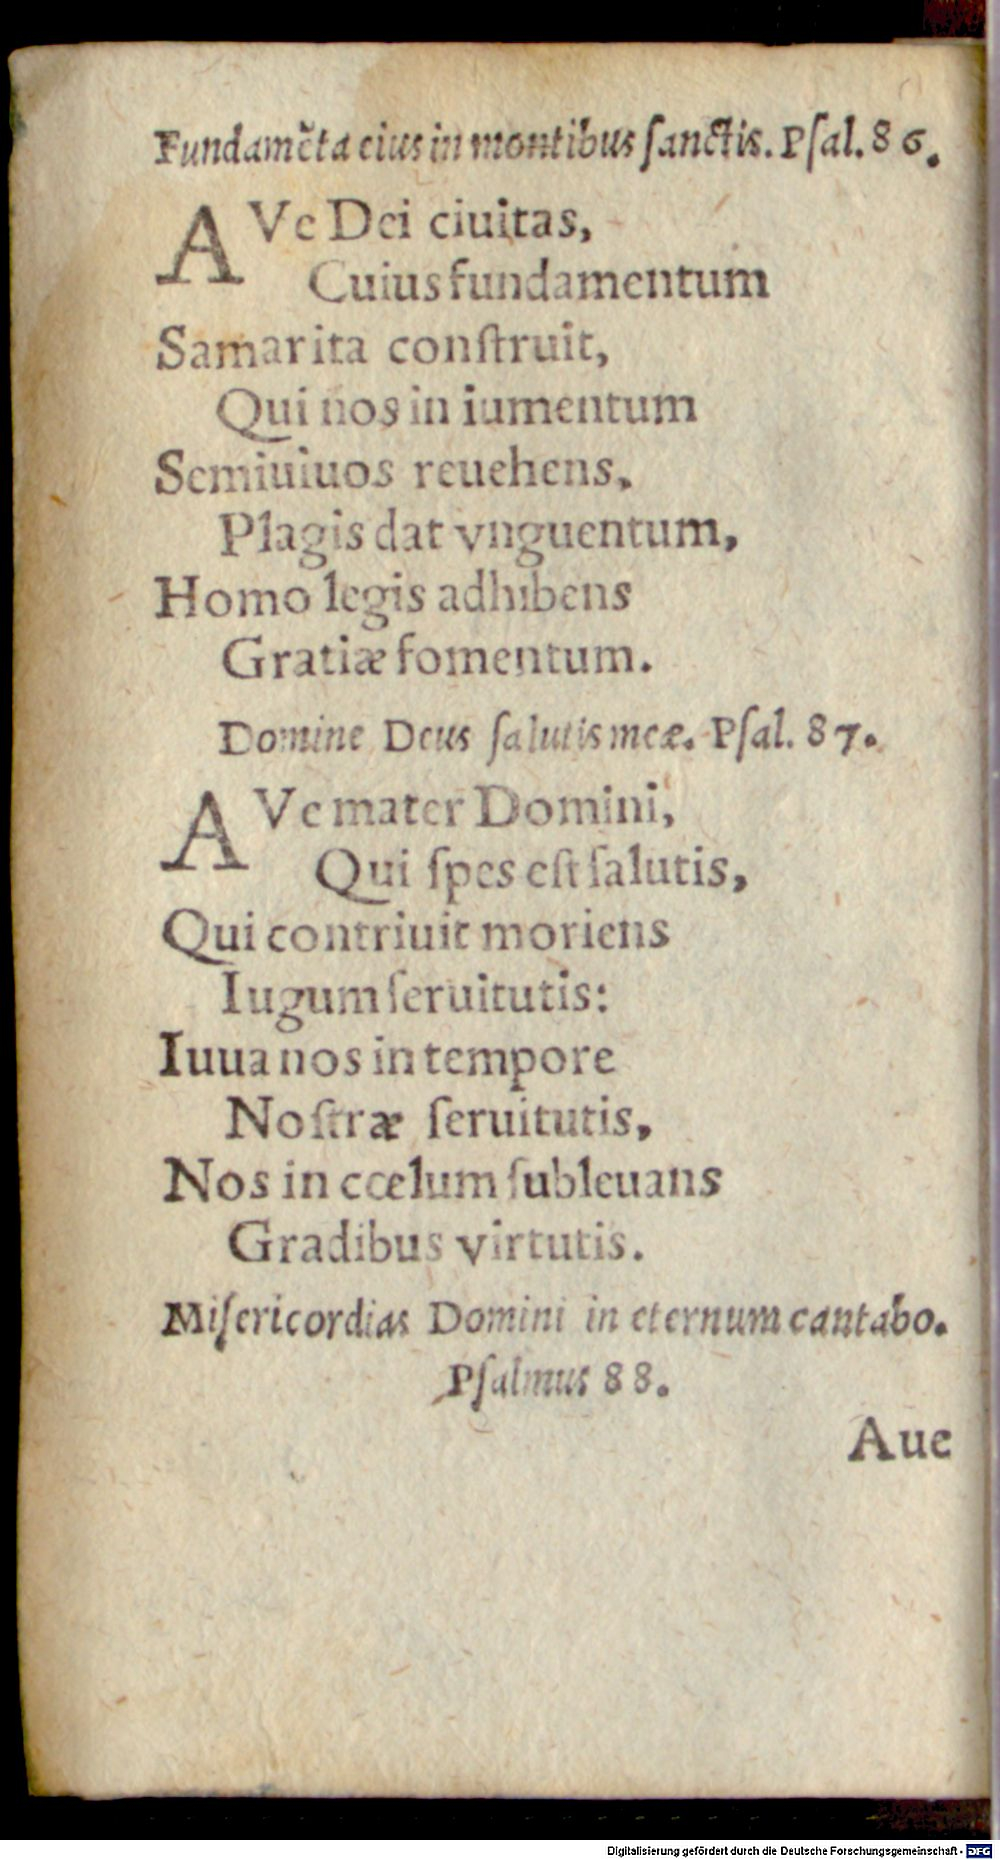 Fundamẽta eius in montibus ſanctis. Pſal. 86.
AVe Dei ciuitas,
Cuius fundamentum
Samarita conſtruit,
Qui nos in iumentum
Semiuiuos reuehens,
Plagis dat vnguentum,
Homo legis adhibens
Gratiæ fomentum.
Domine Deus ſalutis meæ. Pſal. 87.
AVe mater Domini,
Qui ſpes eſt ſalutis,
Qui contriuit moriens
Iugum ſeruitutis:
Iuua nos in tempore
Noſtræ ſeruitutis,
Nos in cœlum ſubleuans
Gradibus virtutis.
Miſericordias Domini in eternum cantabo.
Pſalmus 88.
Aue
Digitalisierung gefördert durch die Deutsche Forschungsgemeinschaft - DFG